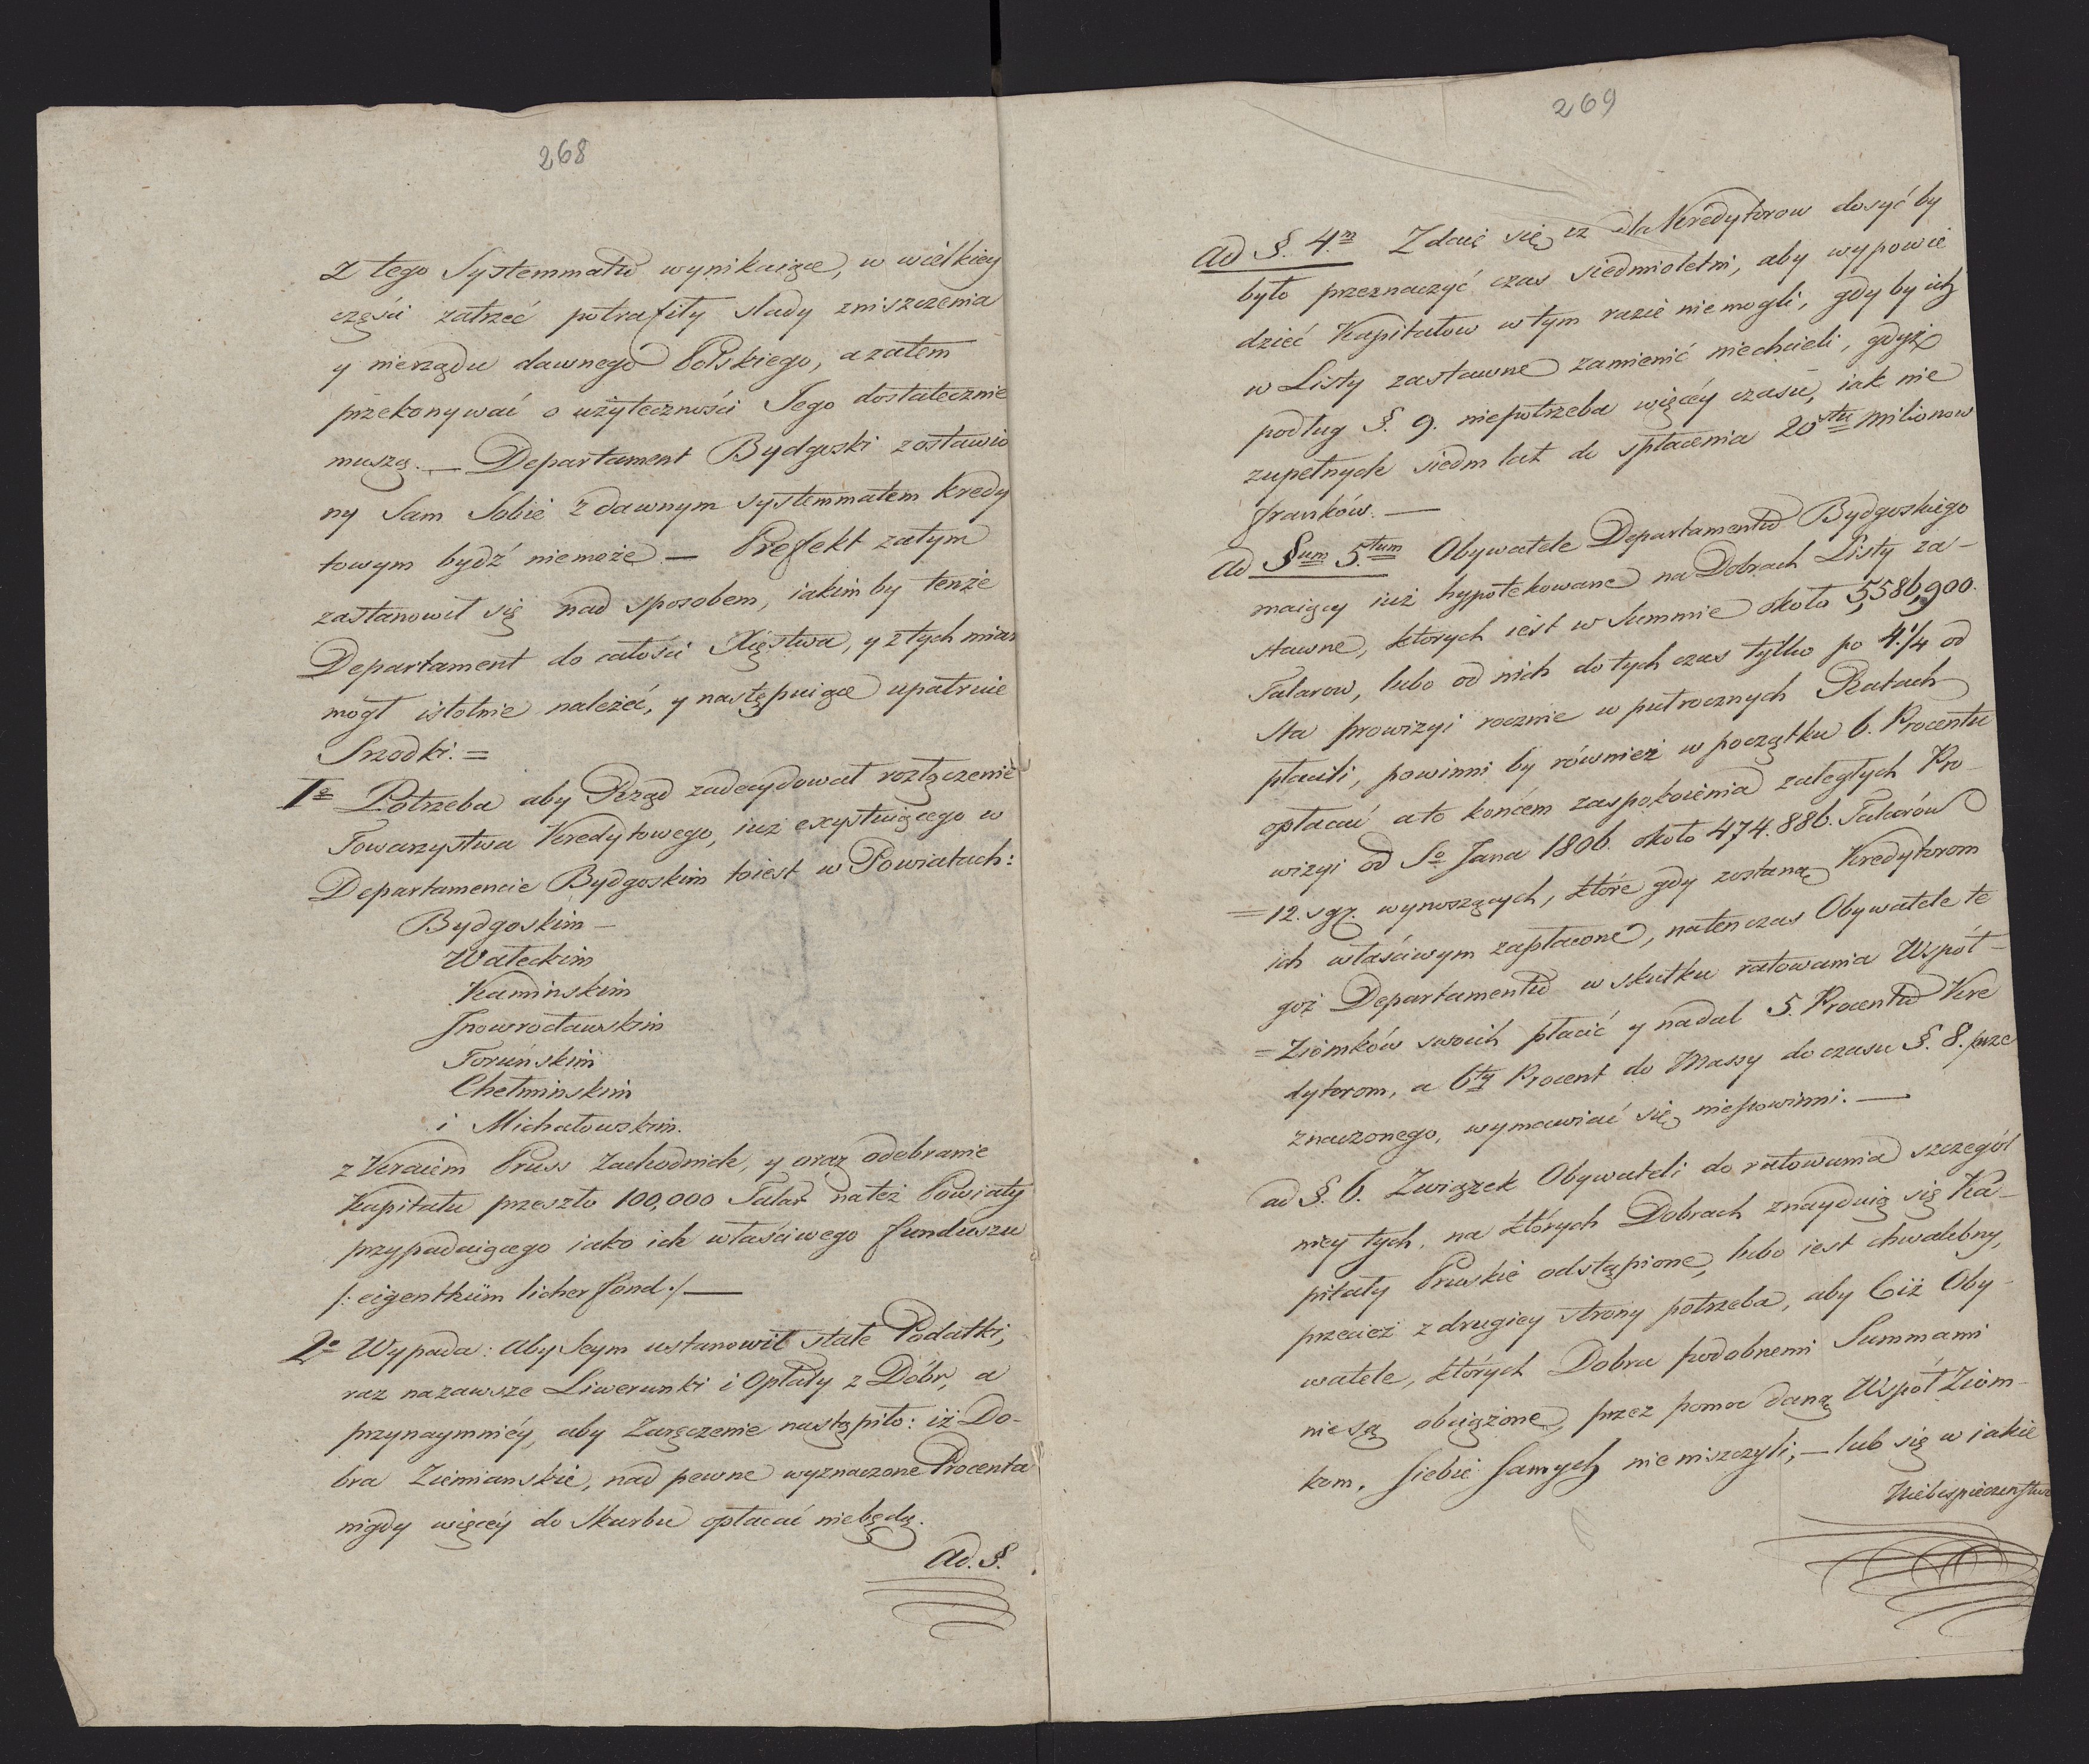 268
z tego Systemmatu wynikaiące, w wielkiey
części zatrzeć potrafiły slady zniszczenia
y nierządu dawnego Polskiego, a zatem
przekonywać o użyteczności Jego dostatecznie
muszą. — Departament Bydgoski zostawio
ny Sam Sobie z dawnym systemmatem kredy
towym bydź niemoże — Prefekt zatym
zastanowił się nad sposobem, iakim by tenże
Departament do całości Xięstwa, y z tych miar
mógł istotnie należeć, y następuiące upatruie
Srzodki. =
1º Potrzeba aby Rząd zadecydował rozłączenie
Towarzystwa Kredytowego, iuż exystuiącego w
Departamencie Bydgoskim toiest w Powiatach:
Bydgoskim —
Wałeckim
Kaminskim
Jnowrocławskim
Toruńskim
Chełminskim
i Michałowskim.
z Kraiem Pruss Zachodnich, y oraz odebranie
Kapitału przeszło 100,000 Talar na też Powiaty
przypadaiącego iako ich właściwego funduszu
/: eigenthüm licher fond :/ —
2º Wypada: Aby Seym ustanowił stałe Podatki,
raz nazawsze Liwerunki i Opłaty z Dóbr, a
przynaymniéy, aby Zaręczenie nastąpiło: iż Do-
bra Ziemianskie, nad pewne wyznaczone Procenta
nigdy więcéy do Skarbu opłacać niebędą.
Ad. §.
269
Ad §. 4.m Zdaie się iż dla Kredytorow dosyć by
było przeznaczyć czas siedmioletni, aby wypowie
dzieć Kapitałow w tym razie niemogli, gdy by ich
w Listy zastawne zamienić niechcieli, gdyż
podług §. 9. niepotrzeba więcéy czasu, iak nie
zupełnych siedm lat do spłacenia 20stu Milionow
franków. —
Ad §um 5.tum Obywatele Departamentu Bydgoskiego
maiący iuż hypotekowane na Dobrach Listy za-
stawne, których iest w Summie około 5,586,900.
Talarow, lubo od nich do tych czas tylko po 4.1/4 od
Sta prowizyi rocznie w pułrocznych Ratach
płacili, powinni by również w początku 6. Procentu
opłacać a to końcem zaspokoienia zaległych Pro-
wizyi od So Jana 1806. około 474.886. Talarów
= 12. sgr. wynoszących, które gdy zostaną Kredytorom
ich właściwym zapłacone, natenczas Obywatele te
goż Departamentu w skutku ratowania Współ-
= Ziomków swoich płacić y nadal 5. Procentu Kre
dytorom, a 6ty Procent do Massy do czasu §. 8. prze
znaczonego, wymawiać się niepowinni. —
ad §. 6. Związek Obywateli do ratowania szczegól
niey tych, na których Dobrach znayduią się Ka-
pitały Pruskie odstąpione, lubo iest chwalebny,
przecież z drugiey strony potrzeba, aby Ciż Oby-
watele, których Dobra podobnemi Summami
nie są obciążone, przez pomoc daną Współ Ziom-
kom, siebie samych nie niszczyli, — lub się w iakie
Niebespieczenstwo